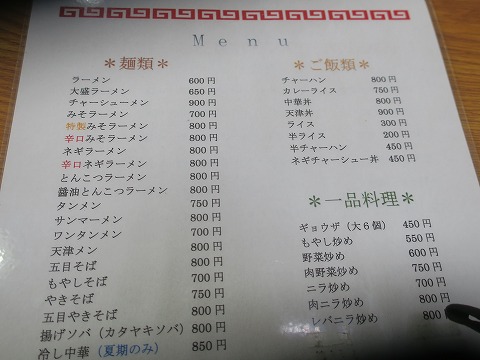 Menu
＊麺類＊
ラーメン 600円
大盛ラーメン 650円
チャーシューメン 900円
みそラーメン 700円
特製みそラーメン 800円
辛口みそラーメン 800円
ネギラーメン 800円
辛口ネギラーメン 800円
とんこつラーメン 800円
醤油とんこつラーメン 800円
タンメン 750円
サンマーメン 800円
ワンタンメン 700円
天津メン 800円
五目そば 800円
もやしそば 700円
やきそば 750円
五目やきそば 800円
揚げソバ（カタヤキソバ）800円
冷し中華（夏期のみ） 850円
＊ご飯類＊
チャーハン 800円
カレーライス 750円
中華丼 800円
天津丼 900円
ライス 300円
半ライス 200円
半チャーハン 450円
ネギチャーシュー丼 450円
＊一品料理＊
ギョウザ（大６個） 450円
もやし炒め 550円
野菜炒め 600円
肉野菜炒め 750円
ニラ炒め 700円
肉ニラ炒め 800円
レバニラ炒め 800